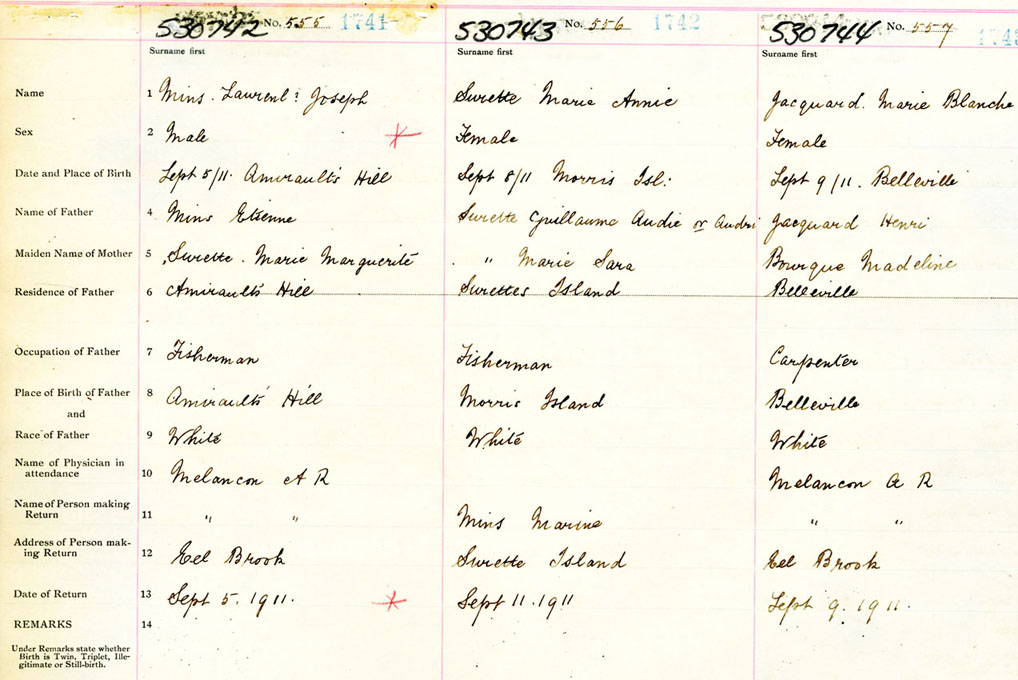 530742 No. 555 1741 530743 No. 556 1742 530744 No. 557 1743
Surname first Surname first Surname first
Name 1 Mins. Laurent: Joseph Surette Marie Annie Jacquard. Marie Blanche
Sex 2 Male Female Female
Date and Place of Birth 3 Sept 5/11. Amirault's Hill Sept 8/11 Morris Isl: Sept 9/11. Belleville
Name of Father 4 Mins Etienne Surette Guillaume Audie or Audri Jacquard Henri
Maiden Name of Mother 5 Surette. Marie Marguerite " Marie Sara Bourque Madeline
Residence of Father 6 Amirault's Hill Surettes Island Belleville
Occupation of Father 7 Fisherman Fisherman Carpenter
Place of Birth of Father 8 Amirault's Hill Morris Island Belleville
and
Race of Father 9 White White White
Name of Physician in
attendance 10 Melancon A R Melancon A R
Name of Person making
Return 11 " " Mins Marine " "
Address of Person mak-
ing Return 12 Eel Brook Surette Island Eel Brook
Date of Return 13 Sept 5. 1911. Sept 11. 1911 Sept 9. 1911.
REMARKS 14
Under Remarks state whether
Birth is Twin, Triplet, Ille-
gitimate or Still-birth.